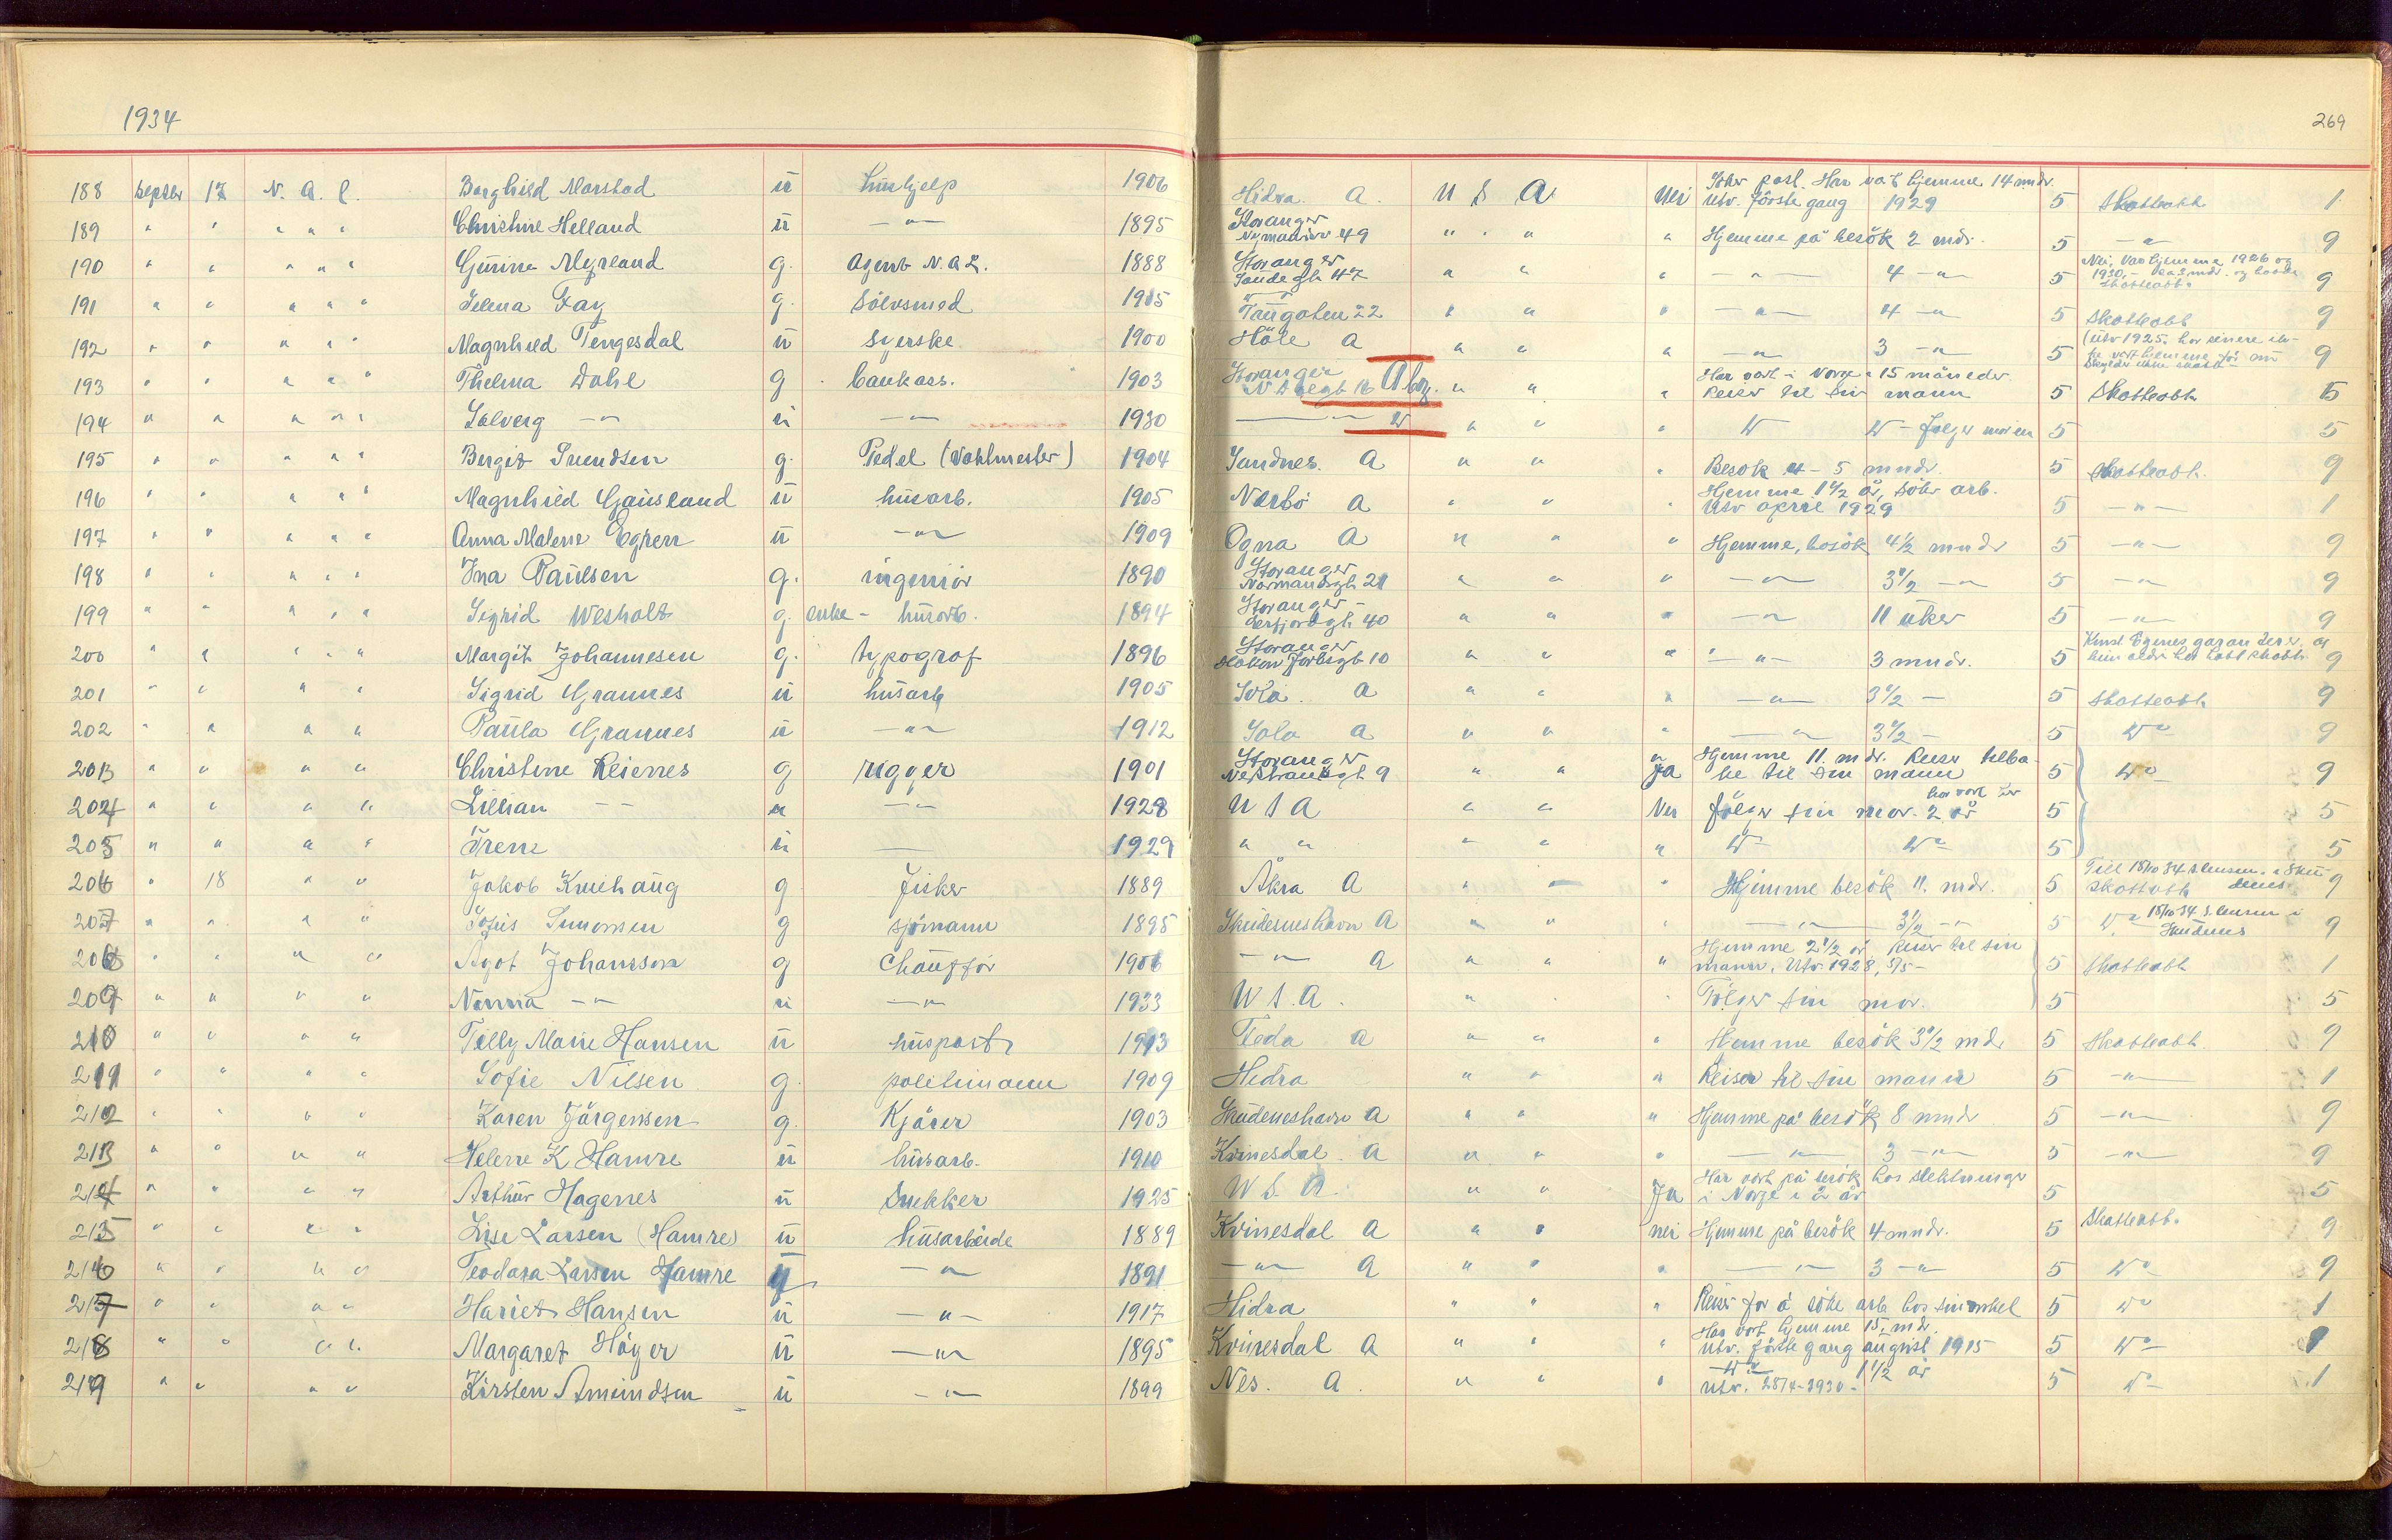 1934
269
188 Septbr 17 N. A. L. Borghild Marstad ü hüshjelp 1906 Hidra. A. U S A Nei Søker post. Har vært hjemme 14 mndr. Utv. første gang 1929 5 Skatteatt. 1
189 " " " " " Christine Helland ü — " — 1895 Stavanger 49 " " " Hjemme på besök 2 mdr. 5 — " — 9
190 " " " " " Gürine Myrland g. Agent N.A.L. 1888 Stavanger 47 " " " — " — 4 — " 5 Nei, Var hjemme 1926 og 1930, skatteatt. 9
191 " " " " " Selena Fay g. Sölvsmed 1905 " Taugaten 22 " " " — " — 4 — " 5 Skatteatt 9
192 " " " " " Magnhild Tengesdal ü Syerske 1900 Höle A " " " — " — 3 — " 5 (utv 1925. har senere ikke vært hjemme før nu 9
193 " " " " " Thelma Dahl g. bankass. 1903 Stavanger A " " " Har vært i Norge i 15 måneder. Reiser til sin mann 5 Skatteatt. 5
194 " " " " " Solveig — " ü — " — 1930 — " — " " " " — følger moren 5 5
195 " " " " " Bergit Svendsen g. Pedel (Vaktmester) 1904 Sandnes. A " " " Besök 4 - 5 mndr. 5 Skatteatt. 9
196 " " " " " Magnhild Gausland ü hüsarb. 1905 Nærbö A " " " Hjemme 1 1/2 år, söker arb. Utv april 1929 5 — " — 1
197 " " " " " Anna Malene ü — " — 1909 Ogna A " " " Hjemme, besök 4 1/2 mndr 5 — " — 9
198 " " " " " Ina Paülsen g. ingeniör 1890 Stavanger Normannsgt. 21 " " " — " — 3 1/2 — " 5 — " — 9
199 " " " " " Sigrid Westholt g. enke - hüsarb. 1894 Stavanger 40 " " " — " — 11 uker 5 — " — 9
200 " " " " " Margit Johannesen g. typograf 1896 Stavanger 10 " " " — " — 3 mndr. 5 9
201 " " " " Sigrid Grannes ü hüsarb 1905 Sola. A " " " — " — 3 1/2 — 5 Skatteatt. 9
202 " " " " Paüla Grannes ü — " — 1912 Sola A " " " — " — 3 1/2 — 5 " 9
203 " " " " Christine Reiernes g rigger 1901 Stavanger 9 " " Ja Hjemme 11. mdr. Reiser tilbake til sin mann 5 " 9
204 " " " " Lillian — — ü — " — 1928 U S A " " Nei følger sin mor. har vært her 2 år 5 5
205 " " " " Irene ü — 1929 " " " " " " " 5 5
206 " 18 " " Jakob Kniehaüg g fisker 1889 Åkra A " — " Hjemme besök 11. mdr. 5 Skatteatt 9
207 " " " " Sofüs Simonsen g sjömann 1895 Skudeneshavn A " " " — " — 3 1/2 — " 5 9
208 " " " " Agot Johansson g Chauffør 1906 — " — A " " " Hjemme 2 1/2 år Reiser til sin mann. Utv. 1928, 5 Skatteatt 1
209 " " " " Norma — " ü — " — 1933 U.S.A. " " " Følger sin mor. 5 5
210 " " " " Tilly Marie Hansen ü hüspost 1913 Feda A " " " Hjemme besök 3 1/2 md. 5 Skatteatt. 9
211 " " " " Sofie Nilsen g. politimann 1909 Hidra " " " Reiser til sin mann 5 — " — 1
212 " " " " Karen Jörgensen g. Kjörer 1903 Skudeneshavn A " " " Hjemme på besök 8 mndr 5 — " — 9
213 " " " " Helene K Hamre ü hüsarb. 1910 Kvinesdal. A " " " — " — 3 — " 5 — " — 9
214 " " " " Arthür Hagenes ü Snekker 1925 U. S. A. " " Ja Har vært på besök hos slektninger i Norge i 2 år 5 5
215 " " " " Lise Larsen (Hamre) ü hüsarbeide 1889 Kvinesdal A " " nei Hjemme på besök 4 mndr. 5 Skatteatt. 9
216 " " " " Teodora Larsen Hamre g — " — 1891 — " — A " " " — " — 3 — " 5 " 9
217 " " " " Hariet Hansen ü — " — 1917 Hidra " " " Reiser for å söke arb. hos sin onkel 5 " 1
218 " " " " Margaret Höyer ü — " — 1895 Kvinesdal A " " " Har vært hjemme 15 mdr. Utv. første gang august 1915 5 " 1
219 " " " " Kirsten Amündsen ü — " — 1899 Nes. A. " " " " 1 1/2 år Utv. 28/4-1930 - 5 " 1